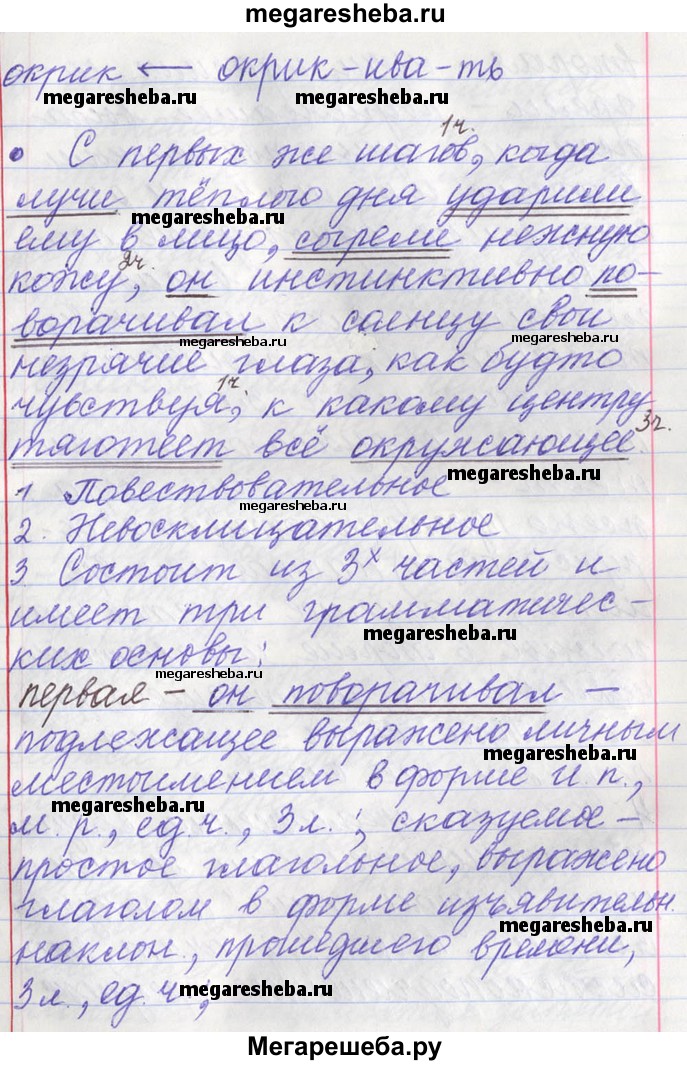 megaresheba.ru
окрик ← окрик-ива-ть
megaresheba.ru megaresheba.ru
• С первых же шагов, 1ч. когда
лучи тёплого дня ударили
megaresheba.ru
ему в лицо, согрели нежную
кожу, 2ч. он инстинктивно по-
ворачивал к солнцу свои
megaresheba.ru megaresheba.ru
незрячие глаза, как будто
чувствуя, 1ч к какому центру
тяготеет всё окружающее. 3ч.
megaresheba.ru
1 Повествовательное
megaresheba.ru
2. Невосклицательное
3 Состоит из 3х частей и
имеет три грамматичес-
megaresheba.ru
ких основы:
megaresheba.ru
первая – он поворачивал –
подлежащее выражено личным
megaresheba.ru
местоимением в форме И.п.,
megaresheba.ru
м.р., ед.ч., 3л.; сказуемое –
простое глагольное, выражено
глаголом в форме изъявительн.
megaresheba.ru
наклон., прошедшего времени,
3л., ед.ч.;
megaresheba.ru
Мегарешеба.ру